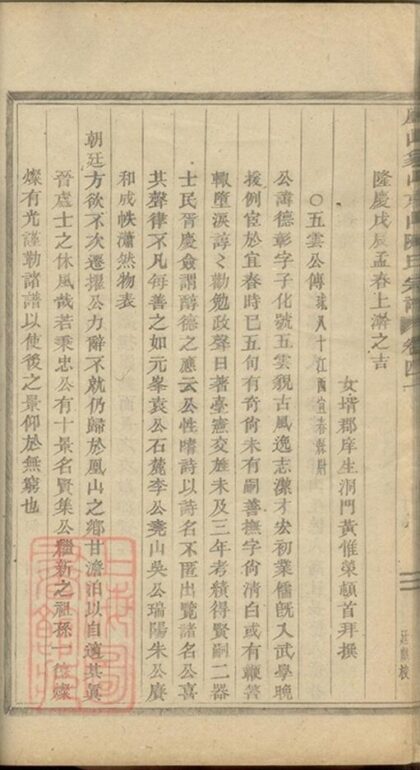 隆慶戊辰孟春上澣之吉
女壻郡庠生洞門黃惟榮頓首拜撰
○五雲公傳 球八十江西宜春縣尉
公諱德彰字子化號五雲貌古風逸志潔才宏初業儒既入武學晚
援例宦於宜春時巳五旬有奇尚未有嗣善撫字尚清白或有鞭箠
輙墮淚諄〻勸勉政聲日著臺憲交旌未及三年考績得賢嗣二器
士民胥慶僉謂醇德之應云公性嗜詩以詩名不匿出覽諸名公喜
其聲律不凡每善之如元峯袁公石麓李公堯山吳公瑞陽朱公賡
和成帙瀟然物表
朝廷方欲不次遷擢公力辭不就仍歸於鳳山之鄉甘澹泊以自適其真
晉處士之休風哉若秉忠公有十景名賢集公繼新之祖孫一
燦有光謹勒諸譜以使後之景仰於無窮也